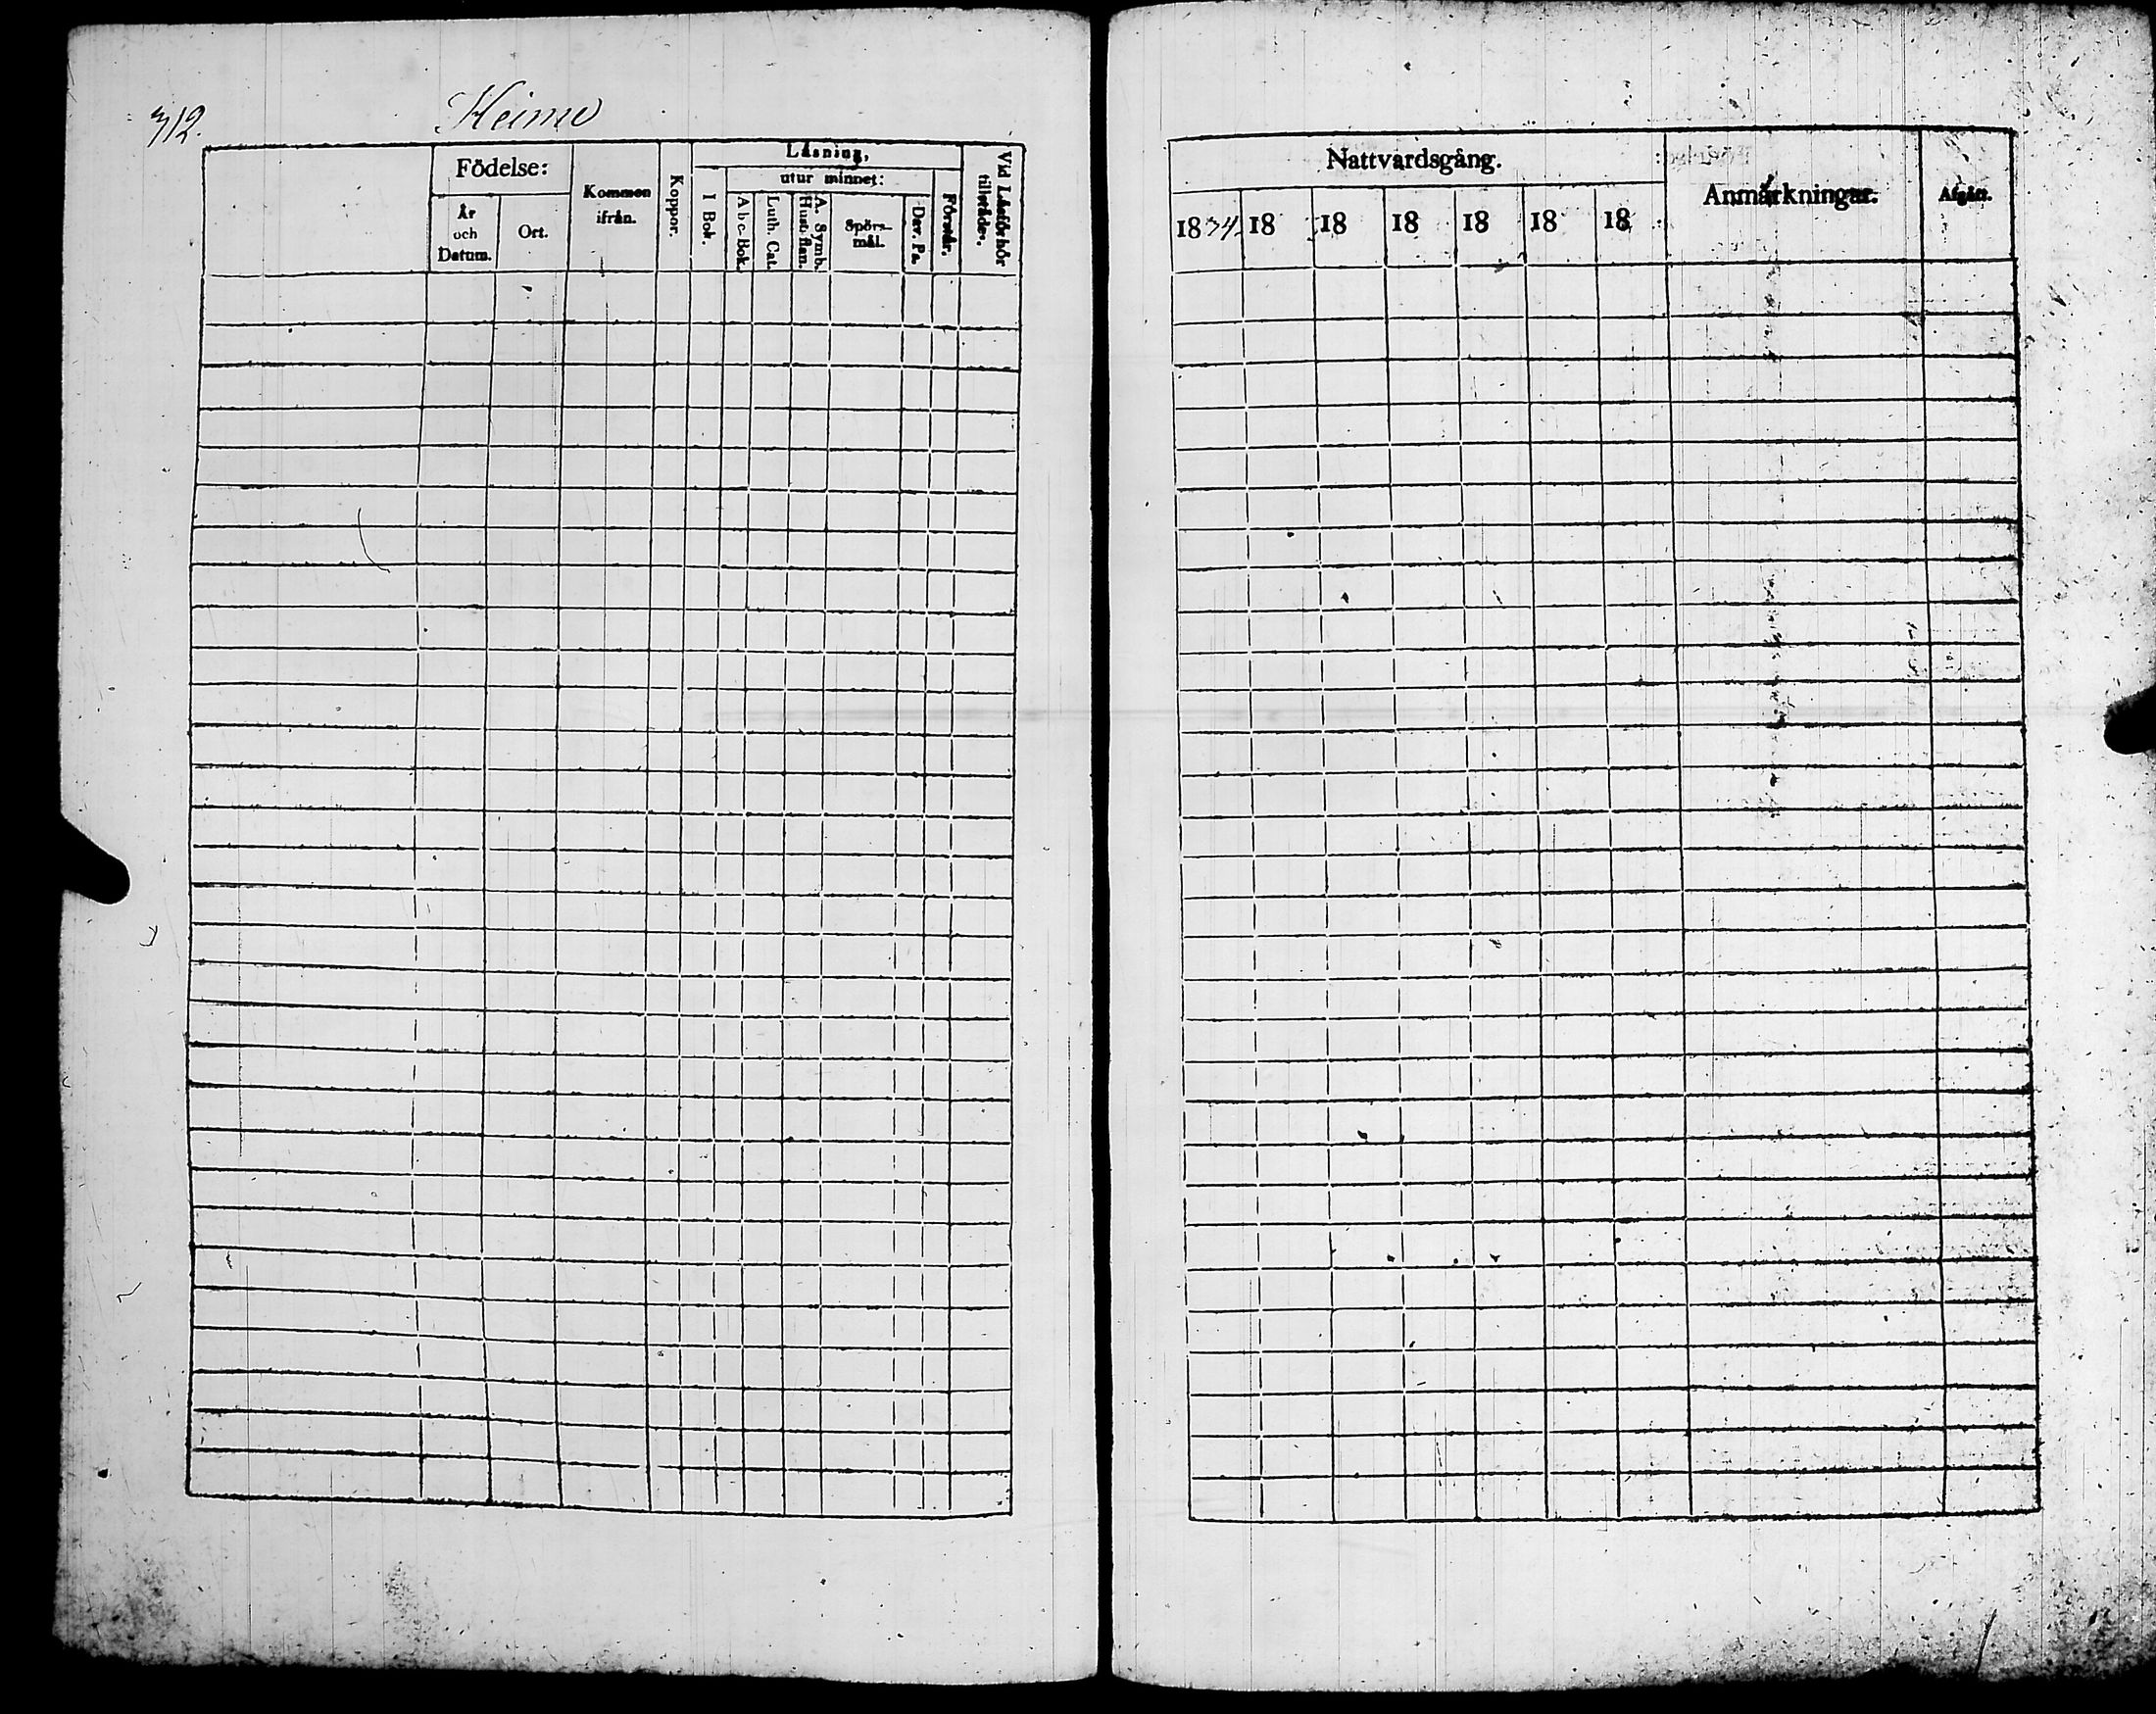 312.
Heimo
Födelse:
År
och
Datum.
Ort.
Kommen
ifrån.
Koppor.
Läsning,
I Bok.
utur minnet:
A b c-Bok.
Luth. Cat.
A. Symb.
Hust. flan.
Spörs-
mål.
Dav. Ps.
Förstår.
Vid Läsförhör
tillstädes.
Nattvardsgång.
1834. 18 18 18 18 18 18
Anmärkningar.
Afgått.